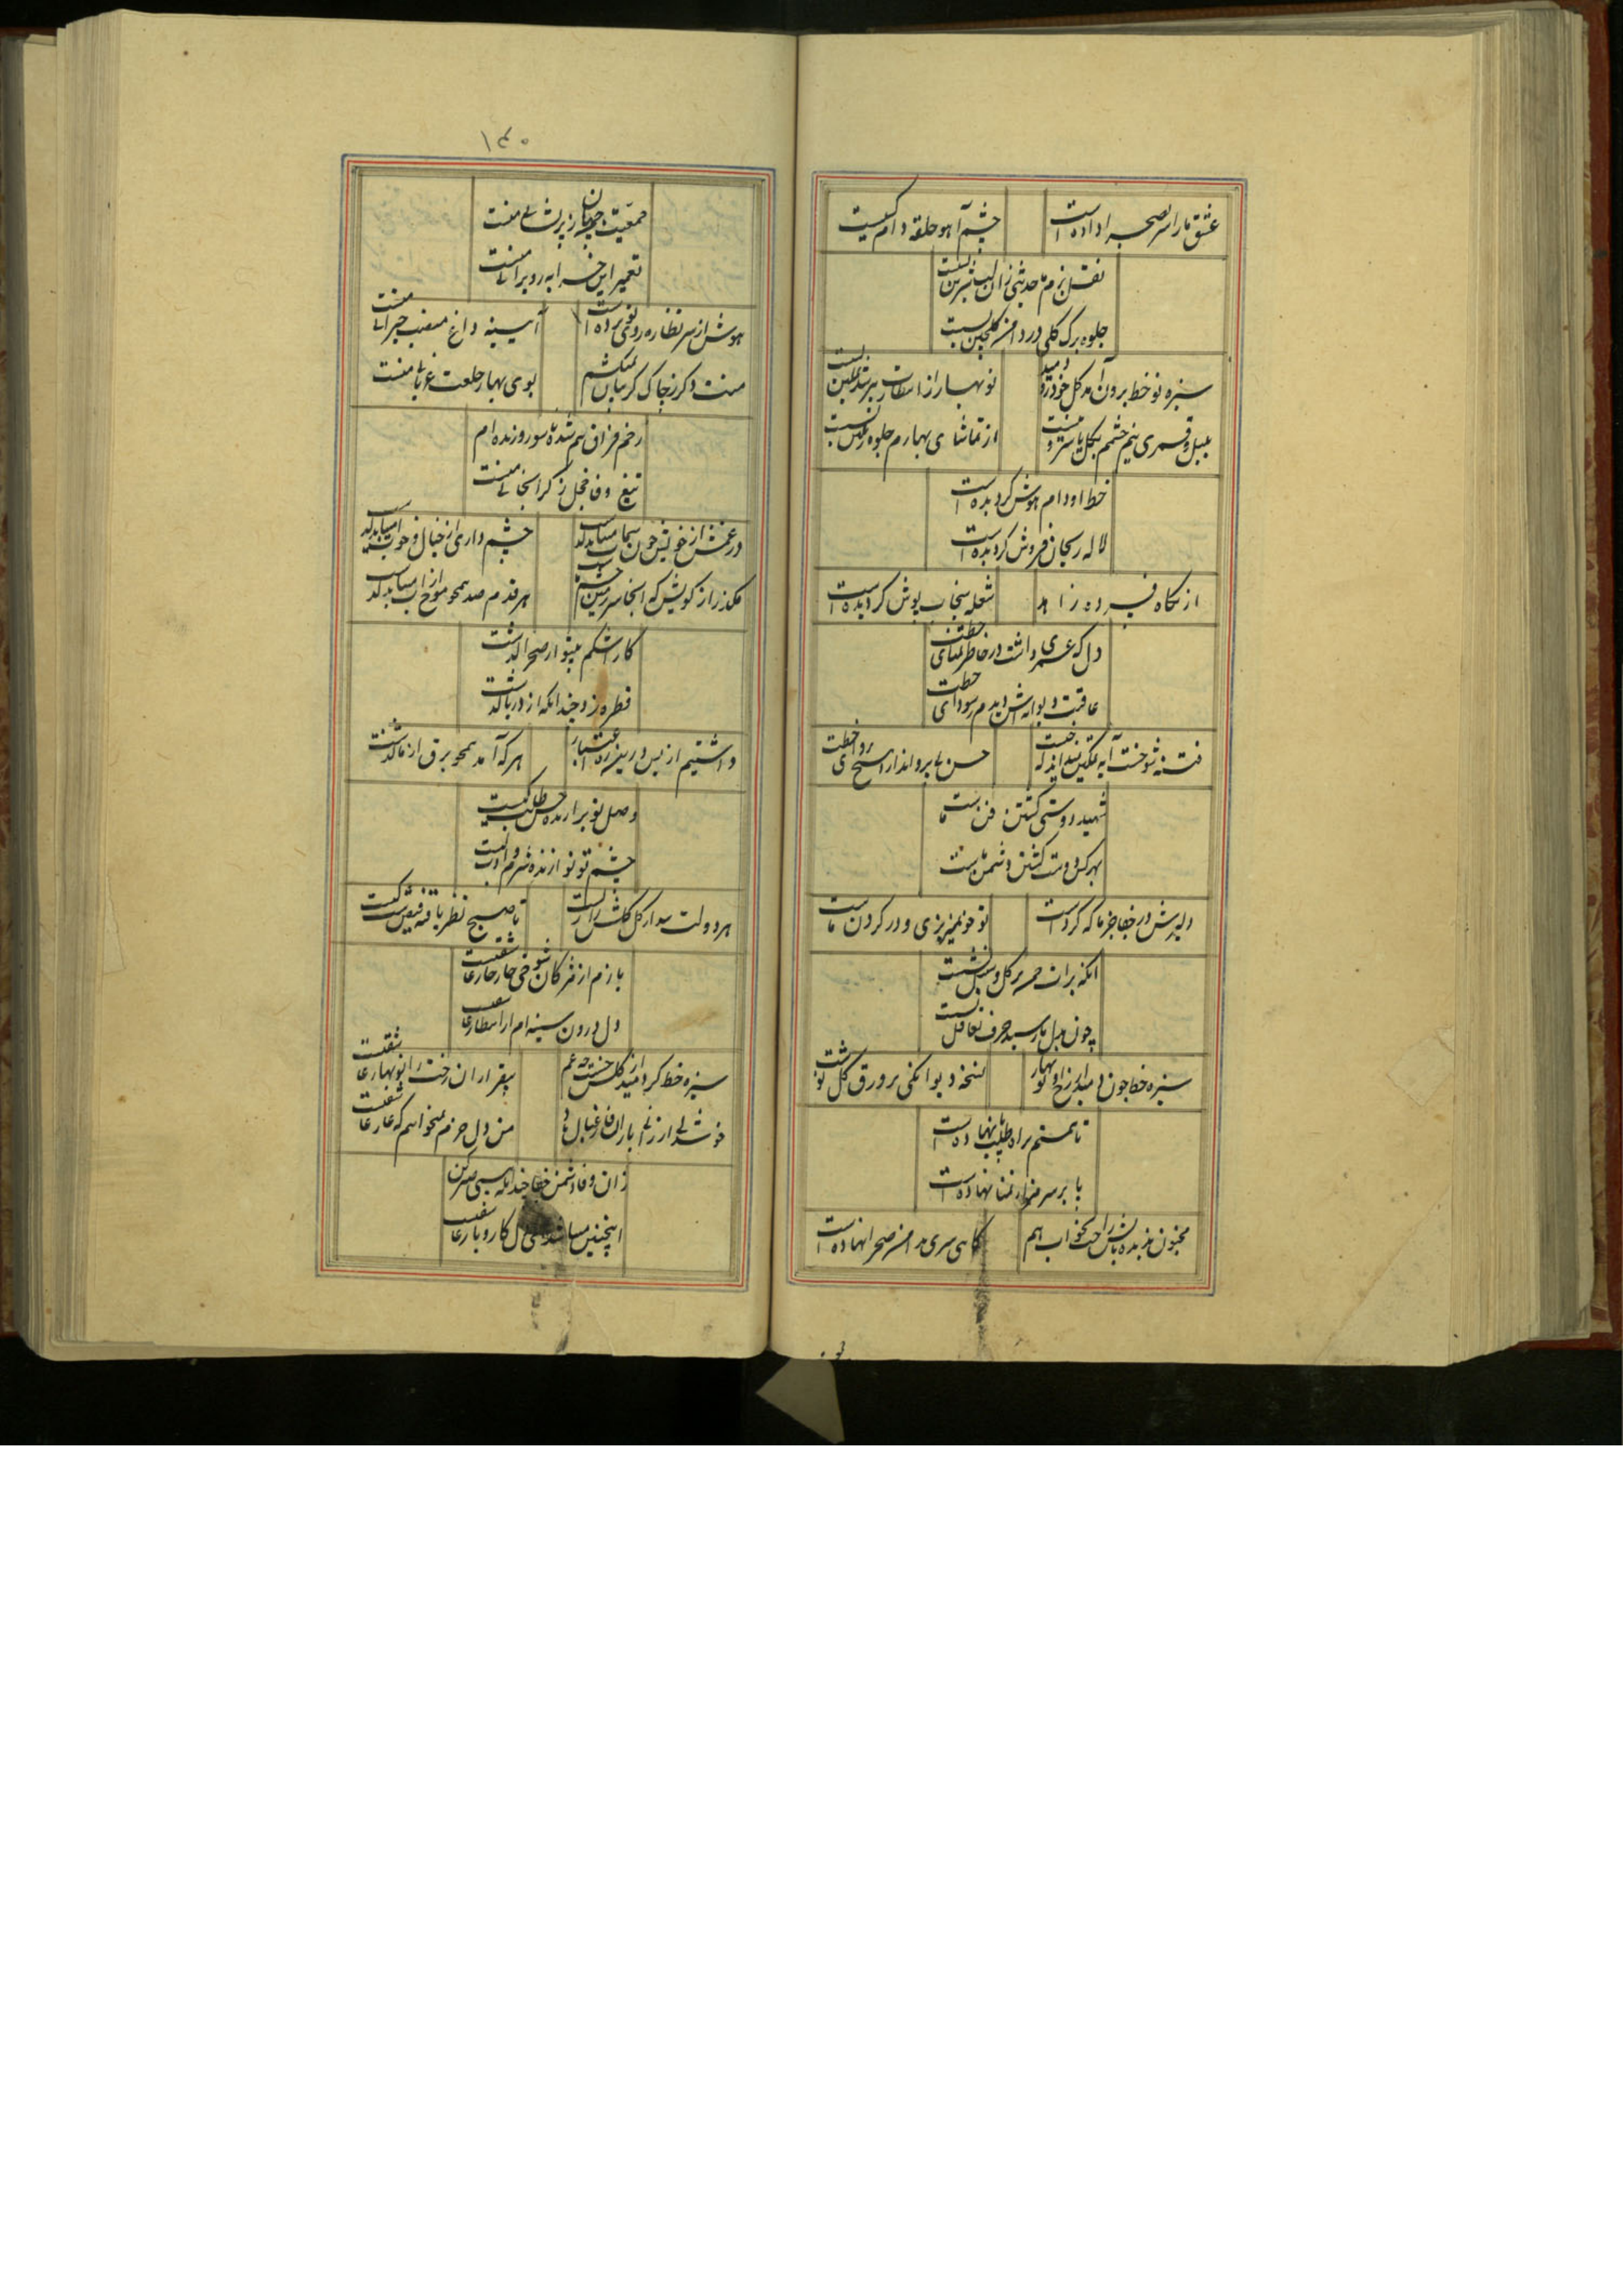 عشق ما را سر بصحرا داده است
چشم آهو حلقه دام کیست
نقل بزم ما حدیثی زان لب شیرین بس است
جلوه برگ گلی در دامن گلچین بس است
سبزه نو خط برون آمد گل خودرو دمید
نو بهار از انتظارت
بلبل و قمری نیم چشمم بگل یا سرو نیست
از تماشای بهارم جلوه بس است
خط او دام هوش گردیده است
لاله ریحان فروش گردیده است
از نگاه فسرده زاهد
شعله سنجاب پوش گردیده است
دل که عمری داشت در خاطر تمنای خطت
عاقبت دیوانه اش دیدم ز سودای خطت
حسن بی پروا
شهید دوستی گشتن فن ماست
بهر کس دوست گشتن دشمن ماست
دلیرش در جفا جز ما که کرده است
تو خونمیریزی و در گردن ماست
آنکه بر آن چهره گل و سنبل نوشت
چون بدل ما رسید حرف تغافل نوشت
سبزه خط چون دمید از رخ او نو بهار
نسخه دیوانگی بر ورق گل نوشت
تا همتم براه طلب پا نهاده است
پا بر سر هزار تمنا نهاده است
مجنون ندیده بالش راحت بخواب هم
گاهی سری بدامن صحرا نهاده است
۱۴۰
جمعیت جهان ز پریشانی منست
تعمیر این خرابه ز ویرانی منست
هوش از سر نظاره رونمی برده است
آیینه داغ منصب حیرانی منست
منت دگر ز چاک گریبان نمیکشم
بوی بهار خلعت عریانی منست
زخم فراق هم شده ناسور و زنده ام
تیغ وفا خجل ز گرانجانی منست
در غمش از خویش چون سیماب میباید گذشت
چشم داری از خیال و خواب میباید گذشت
مگذر از کویش که اینجا سر زمین
هر قدم صد همچو موج از آب میباید گذشت
کار اشکم بیتو از صحرا گذشت
قطره زد چندانکه از دریا گذشت
داشتیم از بس درین ره اعتبار
هر که آمد همچو برق از ما گذشت
وصل تو برآرنده حسن طلب کیست
چشم تو نوازنده شرم و ادب کیست
هر دولت بیدار گل گلشن رازیست
تا صبح نظر یافته فیض شب کیست
بازم از مژگان شوخی خار خار عاشقیست
دل درون سینه ام از انتظار عاشقیست
سبزه خط کرد امید از گلشن چشم
بیقراران رخت را نو بهار عاشقیست
من دل خرم نمیخواهم که عار عاشقیست
زان وفا دشمن جفا چندانکه بینی صبر کن
اینچنین میباشد ای دل کار و بار عاشقیست